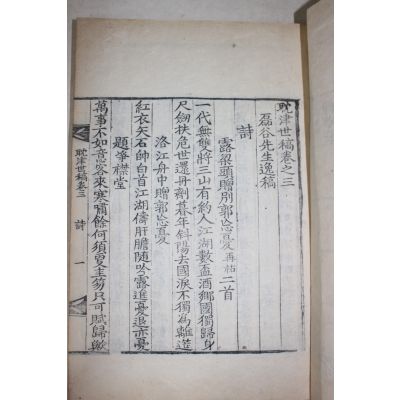 耽津世稿卷之三
磊谷先生逸稿
詩
露梁頭贈別郭忘憂 再祐 二首
一代無雙將三山有約人江湖數盃酒鄉國獨歸身
尺劒扶危世還丹劑暮年斜陽去國淚不獨為離筵
洛江舟中贈郭忘憂
紅衣矢石帥白首江湖儔肝膽隨吟露進憂退亦憂
題爭襟堂
萬事不如意客來寒嘯餘何須更
只可賦歸歟
耽津世稿卷三 詩 一